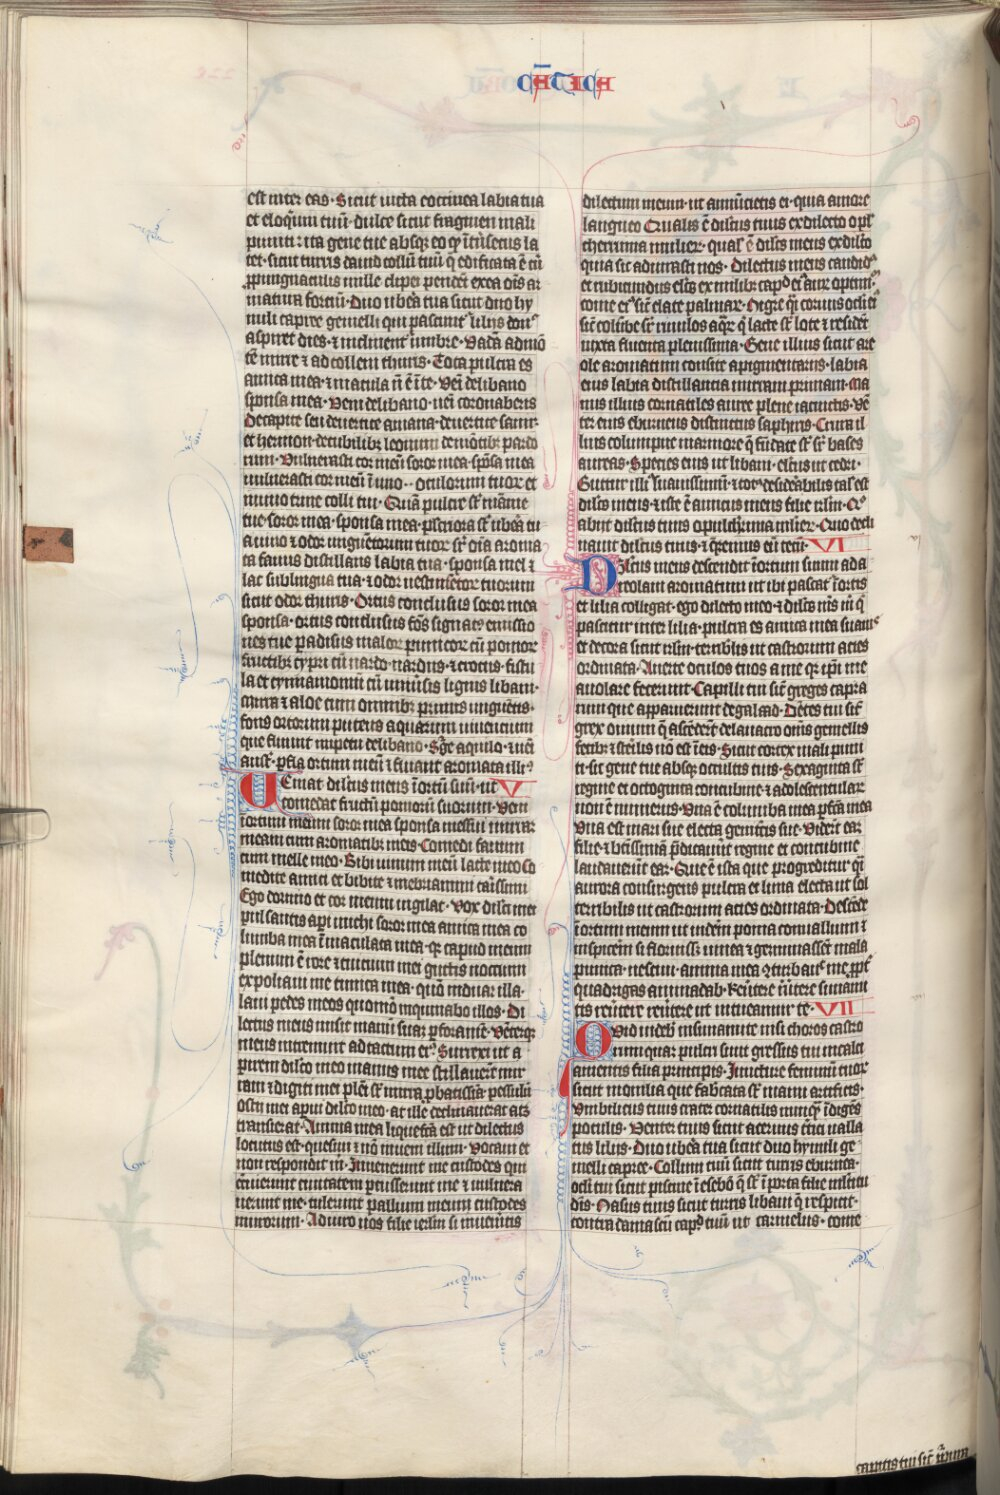 CANTICA
est inter eas. Sicut vitta coccinea labia tua
et eloquiū tuū dulce sicut fragmen mali
punici ita gene tue absqz eo qđ ītrīsecus la
tet. sicut turris david collū tuū q̄ edificata ē cū
ꝓpugnaculis mille clipei pendēt ex ea oīs ar
matura fortiū. Duo ubera tua sicut duo hy
nuli capree gemelli qui pascunt̄ liliis don̄
aspiret dies. et inclinent̄ umbre. Vadā ad mō
tē mirre et ad collem thuris. Tota pulcra es
amica mea et macula nō ē ī te. Veni de libano
sponsa mea. Veni de libano. veni coronaberis
De capite seir de vertice amana de vertice sanir
et hermon de cubilibz leonum de mōtibz pardo
rum. Vulnerasti cor meū soror mea spōsa mea
vulnerasti cor meū ī uno oculorum tuoꝝ et
in uno crine colli tui. Quā pulcre sūt māme
tue soror mea sponsa mea. pulcriora sūt ubera tua
a vino et odor unguētorum tuoꝝ sup̄ oīa aroma
ta favus distillans labia tua sponsa mel et
lac sub lingua tua et odor vestimētoꝝ tuorum
sicut odor thuris. Ortus conclusus soror mea
sponsa. ortus conclusus fōs signatꝰ emissio
nes tue paradisus maloꝝ punicoꝝ cū pomoꝝ
fructibz cypri cū nardo. nardus et crocus. fistu
la et cynnamomū cū univīsis lignis libani.
mirra et aloe cum omnibz primis unguētis.
fons ortorum puteus aquarum viventium
que fluunt impetu de libano. Surge aquilo et veni
austꝰ perfla ortum meū et fluant aromata illiꝰ
Veniat dilcūs meus ī ortū suū. ut V
comedat fructū pomorū suorum. Veni
ī ortum meum soror mea sponsa messui mirrā
meam cum aromatibz meis. Comedi favum
cum melle meo. Bibi vinum meū lacte meo Co
medite amici et bibite et inebriamini carissimi
Ego dormio et cor meum vigilat. Vox dilcī mei
pulsantis aperi michi soror mea amica mea co
lumba mea īmaculata mea. qꝛ capud meum
plenum ē rore et cincinni mei guttis noctium
expoliavi me tunica mea. quō induar illa.
lavi pedes meos quomō inquinabo illos. Di
lectus meus misit manū suā per foramē. et vēter
meus intremuit ad tactum eiꝰ. Surrexi ut a
perirem dilcō meo manus mee stillaverūt mir
ram et digiti mei pleni sūt mirra probatissīa pessulū
ostii mei aperui dilcō meo. at ille declinaverat atqz
transierat. Anima mea liquefcā est ut dilectus
locutus est. quesivi et nō inveni illum. Vocavi et
non respondit m̄. Invenerunt me custodes qui
circūeunt civitatem percusserunt me et vulnera
verunt me. tulerunt pallium meum custodes
murorum. Adiuro vos filie ierlm si inveneritis
dilectum meum ut annūcietis ei. quia amore
langueo Qualis ē dilcūs tuus ex dilecto o pul
cherrima mulierꝝ. qualis ē dilcūs meus ex dilcō
quia sic adiurasti nos. Dilectus meus candidꝰ
et rubicundus elcūs ex milibz capud eiꝰ aurū optimū.
come eiꝰ sicut elate palmaꝝ. Nigre qī corvus oculi eiꝰ
sicut colūbe suꝑ rivulos aqꝝ q̄ lacte sūt lote et resident
iuxta fluenta plenissima. Gene illius sicut are
ole aromatum consite a pigmentariis. labia
eius labia distillancia mirram primam. Ma
nus illius tornatiles auree plene iacinctis. Vē
ter eius eburneus distinctus saphiris. Crura il
lius columpne marmoree q̄ fūdate sūt suꝑ bases
aureas. Species eius ut libani. elcūs ut cedri.
Guttur illiꝰ suavissimū et totꝰ desiderabilis talis est
dilcūs meus et iste ē amicus meus filie irlm. Quo
abiit dilcūs tuus o pulcherrima mulierꝝ. Quo decli
navit dilcūs tuus. et queremus eū tecū. VI
Dilcūs meus descendit ī ortum suum ad a
reolam aromatum ut ibi pascat̄ ī ortis
et lilia colligat. ego dilecto meo et dilcūs meus mi q̄
pascitur inter lilia. pulcra es amica mea suavis
et decora sicut irlm. terribilis ut castrorum acies
ordinata. Averte oculos tuos a me qꝛ ipī me
avolare fecerunt. Capilli tui sicut greges capra
rum que apparuerunt de galaad. Dētes tui sicut
grex ovium q̄ ascēderūt de lavacro om̄s gemellis
fetibz et sterilis nō est ī eis. Sicut cortex mali puni
ci. sic gene tue absqz occultis tuis. Sexaginta sūt
regine et octoginta concubine et adolescentulaꝝ
non ē numerus. Una ē columba mea perfecta mea
Una est matri sue electa genitrici sue. Viderūt eam
filie et beatissimā predicaverūt regine et concubine
laudaverūt eam. Que ē ista que progreditur q̄si
aurora consurgens pulcra ut luna electa ut sol
terribilis ut castrorum acies ordinata. Descēdi
ī ortum meum ut viderem poma convallium et
inspicerem si floruisset vinea et germinassēt mala
punica. nescivi. anima mea conturbavit me propter
quadrigas aminadab. Revertere revertere sunami
tis revertere revertere ut intueamur te. VII
Quid videbis in sunamite nisi choros castro
rum quam pulcri sunt gressus tui in calci
amentis filia principis. Iuncture feminum tuoꝝ
sicut monilia que fabricata sūt manu artificis.
Umbilicus tuus crater tornatilis nunqꝫ īdigēs
poculis. Venter tuus sicut acervus tritici valla
tus liliis. Duo ubera tua sicut duo hynuli ge
melli capree. Collum tuū sicut turris eburnea.
oculi tui sicut piscine ī esebō q̄ sūt ī porta filie multitu
dīs. Nasus tuus sicut turris libani q̄ respicit
contra damascū capud tuū ut carmelus. come
capitis tui sicut purpura